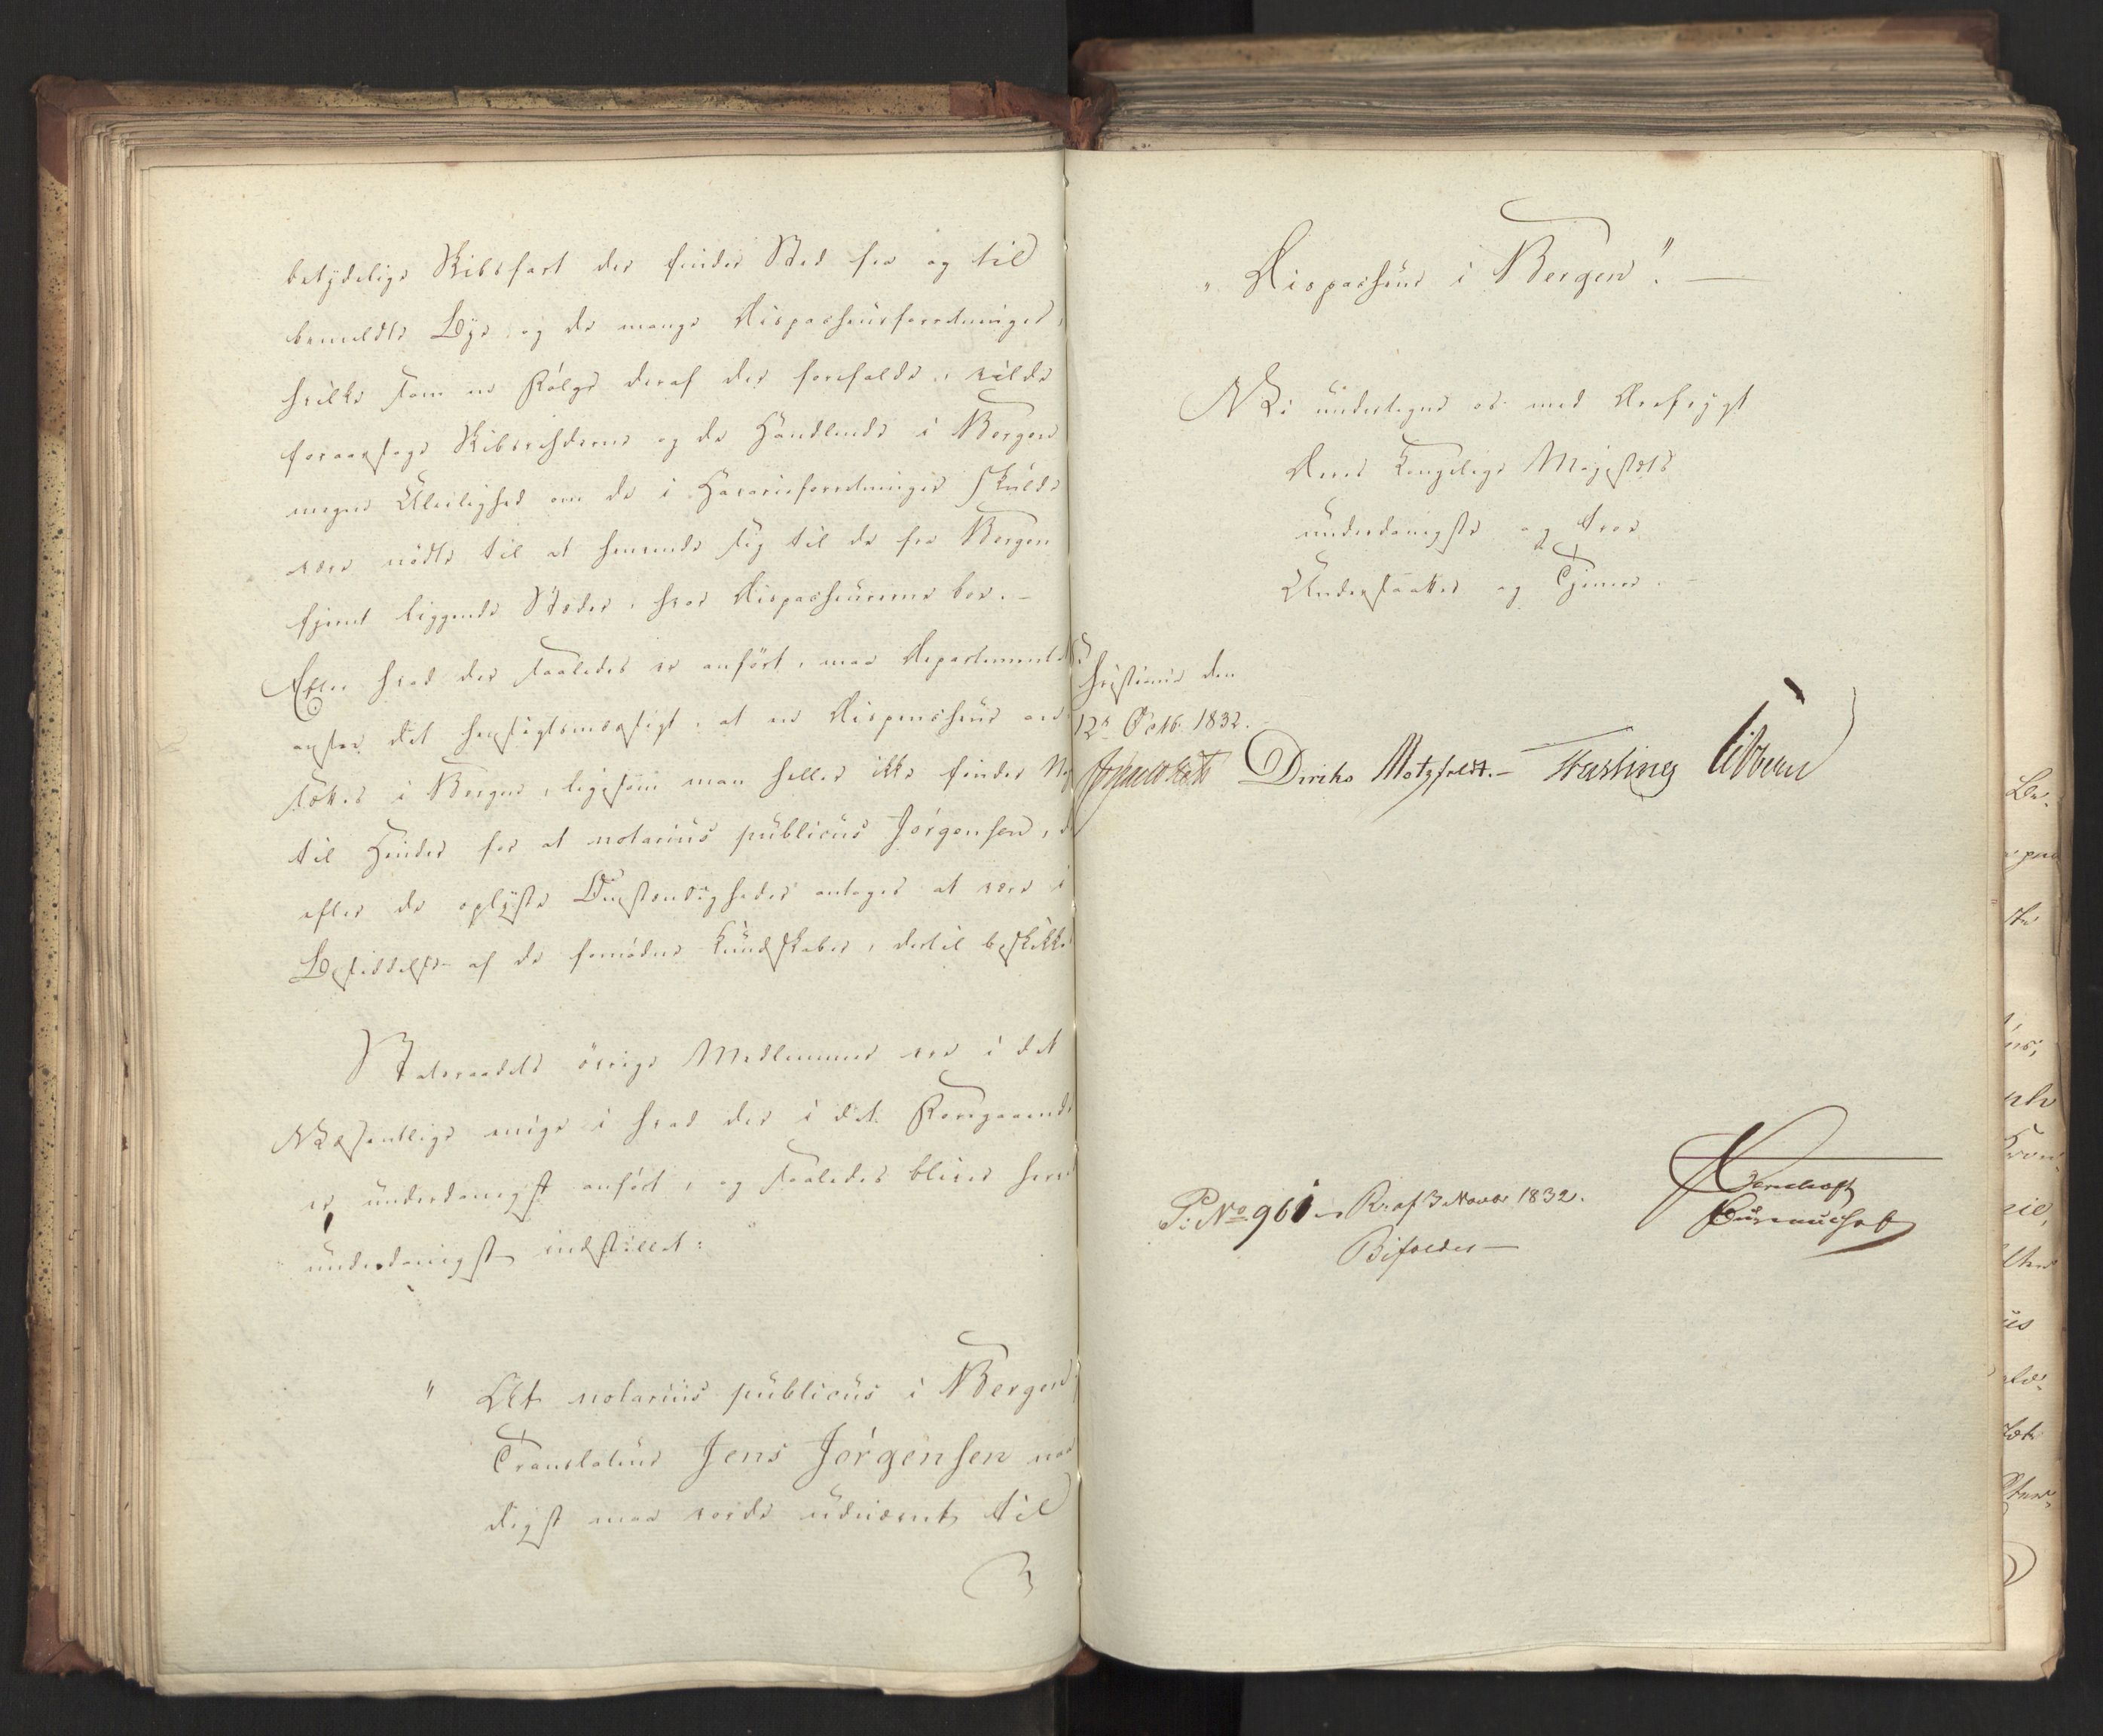 betydelige Skibsfart der finder Sted fra og til
bemeldte Bye og de mange Dispacheurforretninger,
hvilke som en Følge deraf der forefalde, vilde
foraarsage Skibsrhederne og de Handlende i Bergen
megen Uleilighed om de i Havarieforretninger skulde
være nødte til at henvende sig til de fra Bergen
fjernt liggende Steder, hvor Dispacheurerne boe. -
Efter hvad der saaledes er anført, maa Departementet
ansee det hensigtsmæssigt, at en Dispacheur an-
sættes i Bergen, ligesom man heller ikke finder No
til Hinder for at notarius publicus Jørgensen, d
efter de oplyste Omstændigheder antages at være i
Besiddelse af de fornødne Kundskaber, dertil beskikkes
Statsraadets øvrige Medlemmer ere i det
Væsentlige enige i hvad der i det Foregaaende
er underdanigst anført, og saaledes bliver herved
underdanigst indstillet:
" At notarius publicus i Bergen
Translateur Jens Jørgensen naa
digst maa vorde udnævnt til
" Dispacheur i Bergen". —
Vi undertegne os med Ærefrygt
Deres Kongelige Majestæts
underdanigste og troe
Undersaatter og Tjenere. -
Christiania den
12te Octb. 1832.
Diriks Motzfeldt. - Fasting Vibe
P: No 961 - R: af 3 Novbr 1832.
Bifaldes —